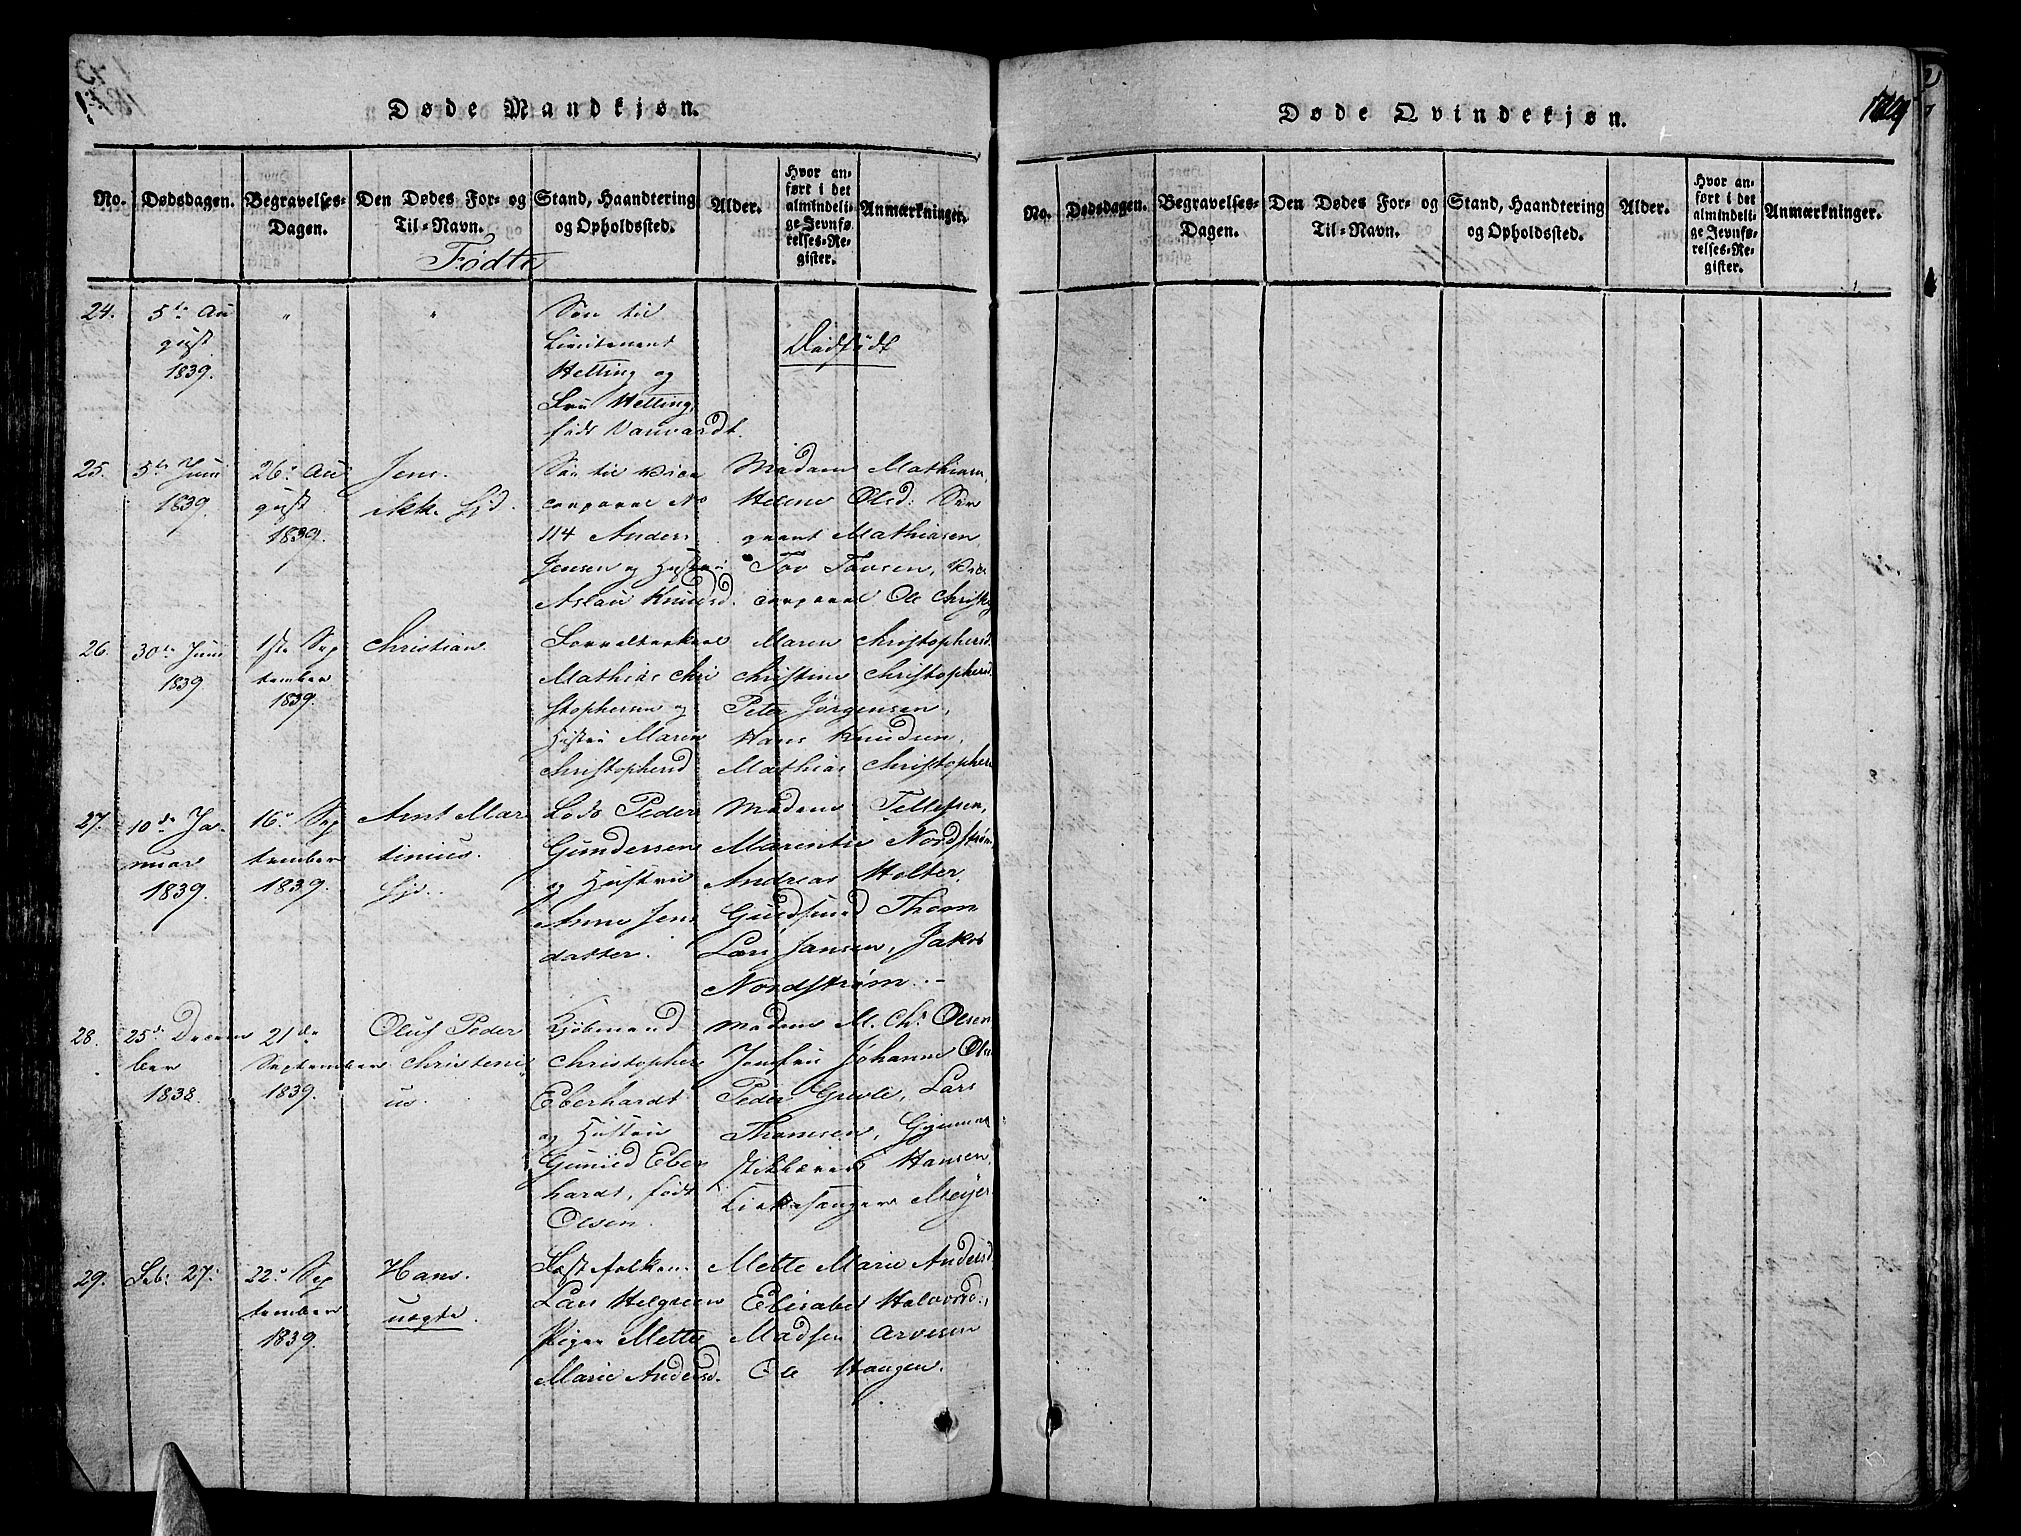 Døde Mandkjøn.
No.
Dødsdagen.
Begravelses-
Dagen.
Den Dødes For- og
Til-Navn.
Stand, Haandtering
og Opholdssted.
Alder.
Hvor an-
ført i det
almindeli-
ge Jevnfø-
relses-Re-
gister.
Anmærkninger.
Fødte
24.
5te Au
gust
1839.
"
"
Søn til
Lieutenant
Hetting og
Fru Hetting,
født
Dødfødt
25.
5te Juni
1839.
26. Au
gust
1839.
Jens.
ikke hjd.
Søn til Vice
corporal No
114 Anders
Jensen og Hustru
Aslau Knudsd.
Madam Mathiasen,
Helene Olsd: Ser
geant Mathiasen
Tov Tovsen, Vice
corporal Ole Christ
26.
30te Juni
1839
1ste Sep
tember
1839.
Christian
Mathias Chri
stophersen og
Hustru Maren
Christophersd
Maren Christophersd.
Christine Christophersd.
Peter Jørgensen,
Hans Knudsen,
Mathias Christophers
27.
10de Ja-
nuar
1839.
16. Sep
tember
1839.
Arnt Mar
tinius.
hjd.
Lods Peder
Gundersen
og Hustru
Anne Jens
datter.
Madam Tellefsen,
Marinthe Nordstrøm
Andreas Holter.
Gudmund Thom
Lars Jansen, Jakob
Nordstrøm.
28.
25de Decem
ber
1838.
21de
September
1839.
Oluf Peder
Christeni
us.
Kjøbmand
Christopher
Eberhardt
og Hustru
Gunild Eber
hardt, født
Olsen.
Madam M. Chr Olsen
Jomfru Johanne Olsen
Peder Greve, Lars
Thomsen, Gymna
stiklærer Hansen,
Kirkesanger Meyer
29.
Feb: 27.
22. Sep
tember
1839.
Hans.
uægte.
Fæstefolkene
Lars Helgesen
Pigen Mette
Marie Andersd.
Mette Marie Andersd
Elisabet Halvorsd.,
Madsen Arvesen
Ole Haugen.
Døde Qvindekjøn.
No.
Dødsdagen.
Begravelses-
Dagen.
Den Dødes For- og
Til-Navn.
Stand, Haandtering
og Opholdssted.
Alder.
Hvor an-
ført i det
almindeli-
ge Jevnfø-
relses-Re-
gister.
Anmærkninger.